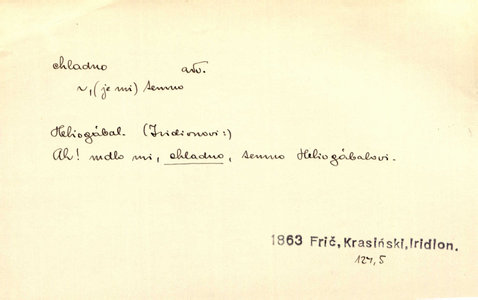 chladno adv.
~, (je mi) temno
Heliogábal. (Iridionovi:)
Ah! mdlo mi, chladno, temno Heliogábalovi.
1863 Frič, Krasiński, Iridion.
124,5